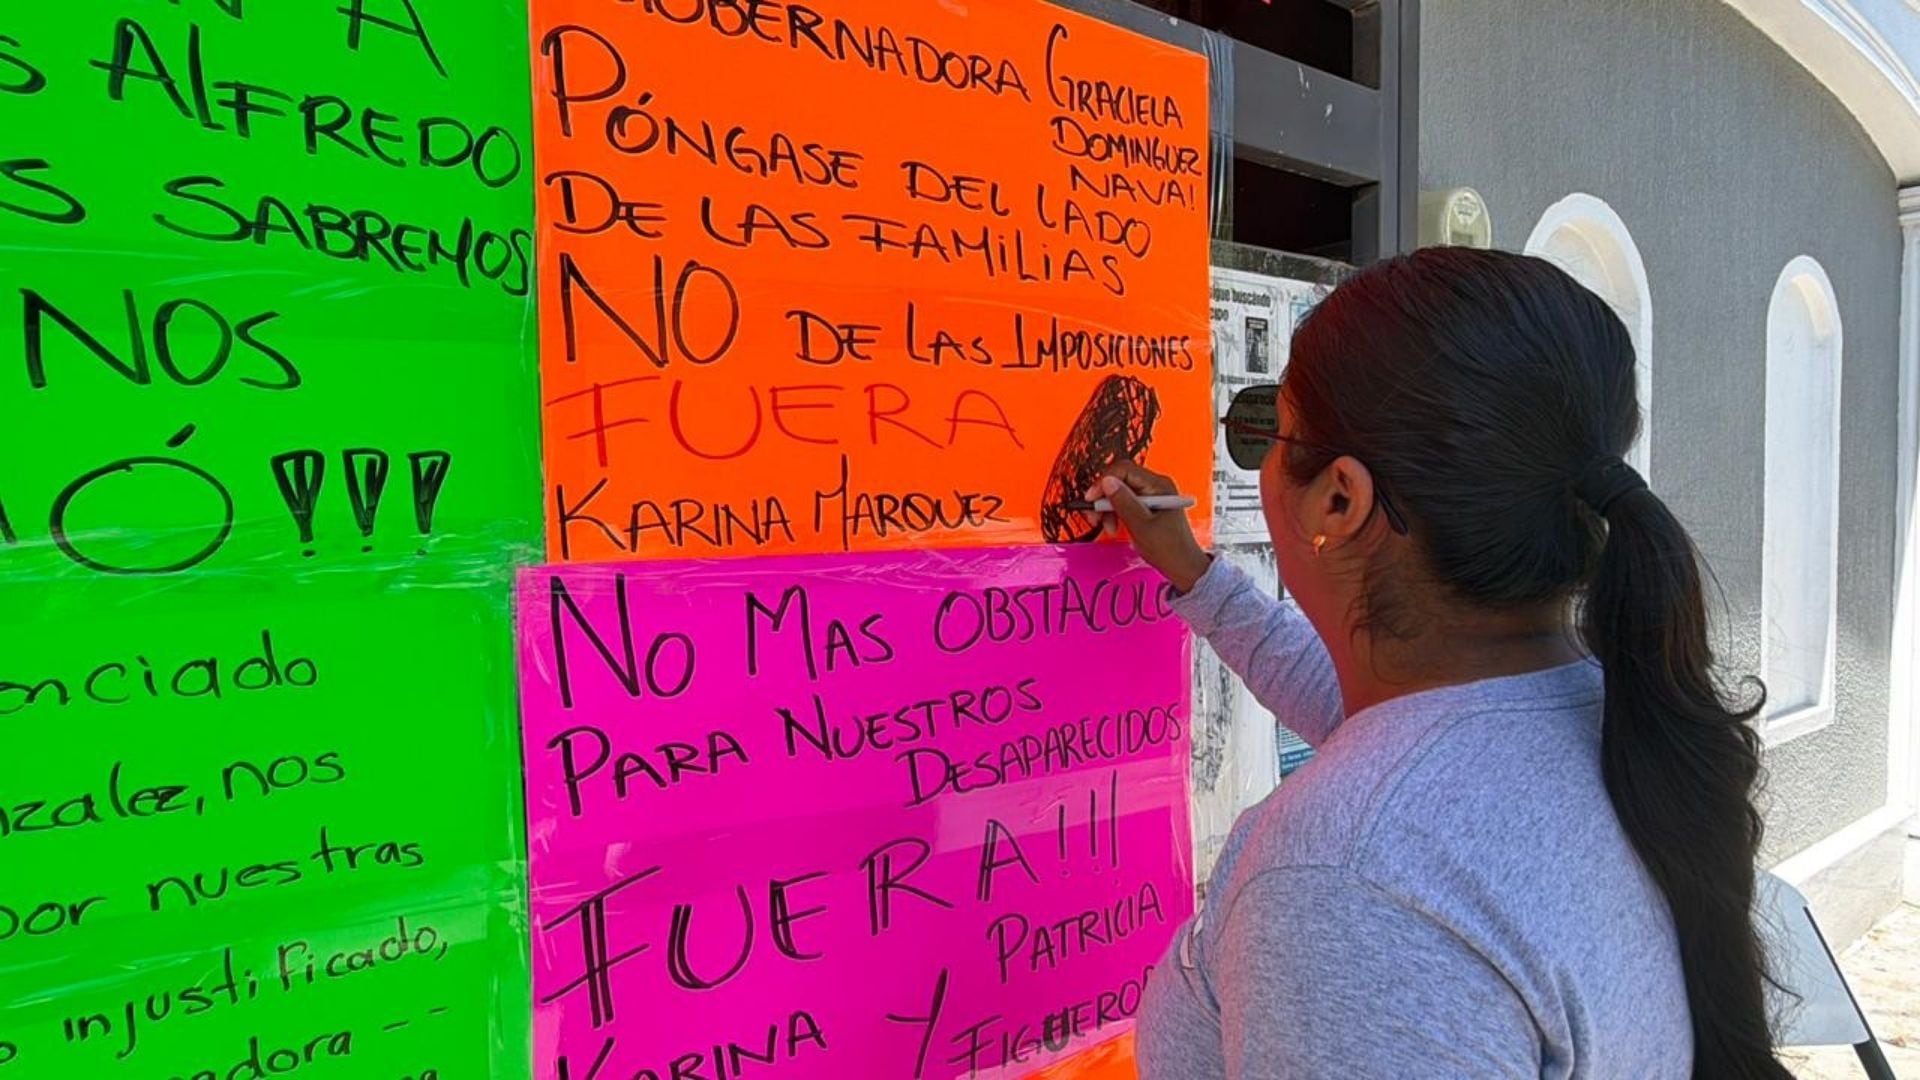 A
ALFREDO
SABREMOS
NOS
Ó!!!
nos
por nuestras
injustificado,
GOBERNADORA GRACIELA
DOMINGUEZ
NAVA!
PÓNGASE DEL LADO
DE LAS FAMILIAS
NO DE LAS IMPOSICIONES
FUERA
KARINA MARQUEZ
NO MAS OBSTACULO
PARA NUESTROS
DESAPARECIDOS
FUERA!!!
KARINA Y PATRICIA
FIGUERO